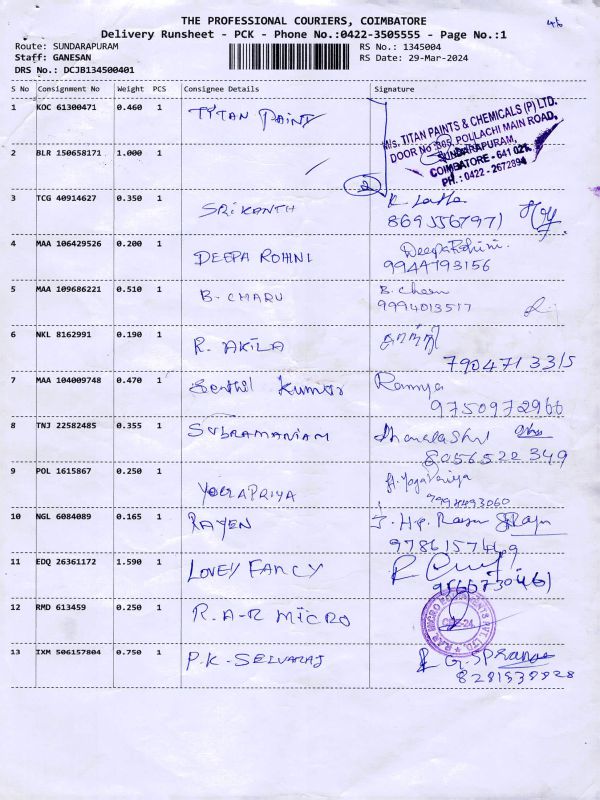 THE PROFESSIONAL COURIERS, COIMBATORE
Delivery Runsheet - PCK - Phone No.:0422-3505555 - Page No.:1
Route: SUNDARAPURAM RS No.: 1345004
Staff: GANESAN RS Date: 29-Mar-2024
DRS No.: DCJB134500401
S No Consignment No Weight PCS Consignee Details Signature
1 KOC 61300471 0.460 1 TYTAN PAINT
M/s. TITAN PAINTS & CHEMICALS (P) LTD.
DOOR No. 305, POLLACHI MAIN ROAD,
SUNDARAPURAM,
COIMBATORE - 641 021.
PH.: 0422 - 2672894
2 BLR 150658171 1.000 1 2
3 TCG 40914627 0.350 1 SRIKANTH K. Latha
8695567971
4 MAA 106429526 0.200 1 DEEPA ROHINI DeepaRohini.
9944793156
5 MAA 109686221 0.510 1 B. CHARU B. Charu
9994013517
6 NKL 8162991 0.190 1 R. AKILA
7904713315
7 MAA 104009748 0.470 1 Senthil Kumar Ramya
9750972966
8 TNJ 22582485 0.355 1 SUBRAMANIAM
8056522349
9 POL 1615867 0.250 1 YOGAPRIYA
7994493060
10 NGL 6084089 0.165 1 RAYEN
9786157469
11 EDQ 26361172 1.590 1 LOVELY FANCY
12 RMD 613459 0.250 1 R.A-R MICRO
13 IXM 506157804 0.750 1 P.K. SELVARAJ